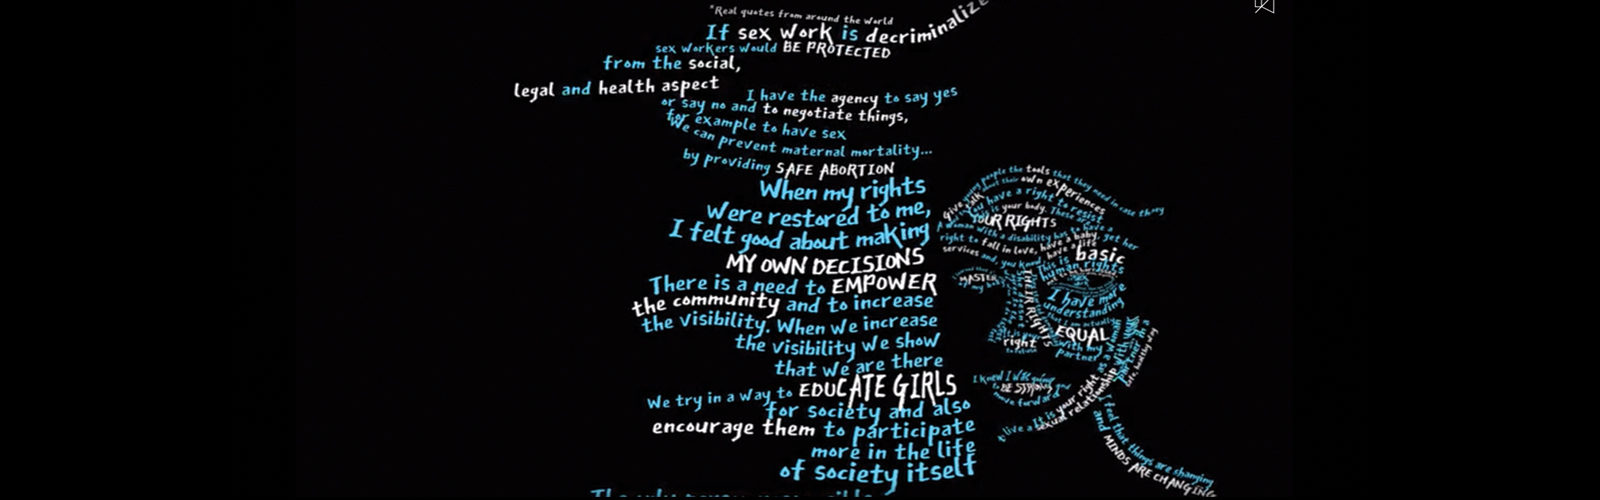 "Real quotes from around the world
If sex work is decriminalize
sex workers would BE PROTECTED
from the social,
legal and health aspect
I have the agency to say yes
or say no and to negotiate things,
for example to have sex
We can prevent maternal mortality...
by providing SAFE ABORTION
When my rights
Were restored to me,
I felt good about making
MY OWN DECISIONS
There is a need to EMPOWER
the community and to increase
the visibility. When we increase
the visibility we show
that we are there
We try in a way to EDUCATE GIRLS
for society and also
encourage them to participate
more in the life
of society itself
Give young people the tools that they need in case they
talk about their own experiences
You have a right to resist
is your body. These are
YOUR RIGHTS
A woman with a disability has to have a
right to fall in love, have a baby, get her
services and, you know, have a life
This is basic
human rights
MASTER
THEIR RIGHTS
I have more
understanding
that I am actually
EQUAL
with my
partner
as a woman
right
I knew I was going
to BE STRONG
move forward
It is your right
to live a
sexual relationship with your
partner in a
safe, healthy way
I feel that things are shanging
and MINDS ARE CHANGING